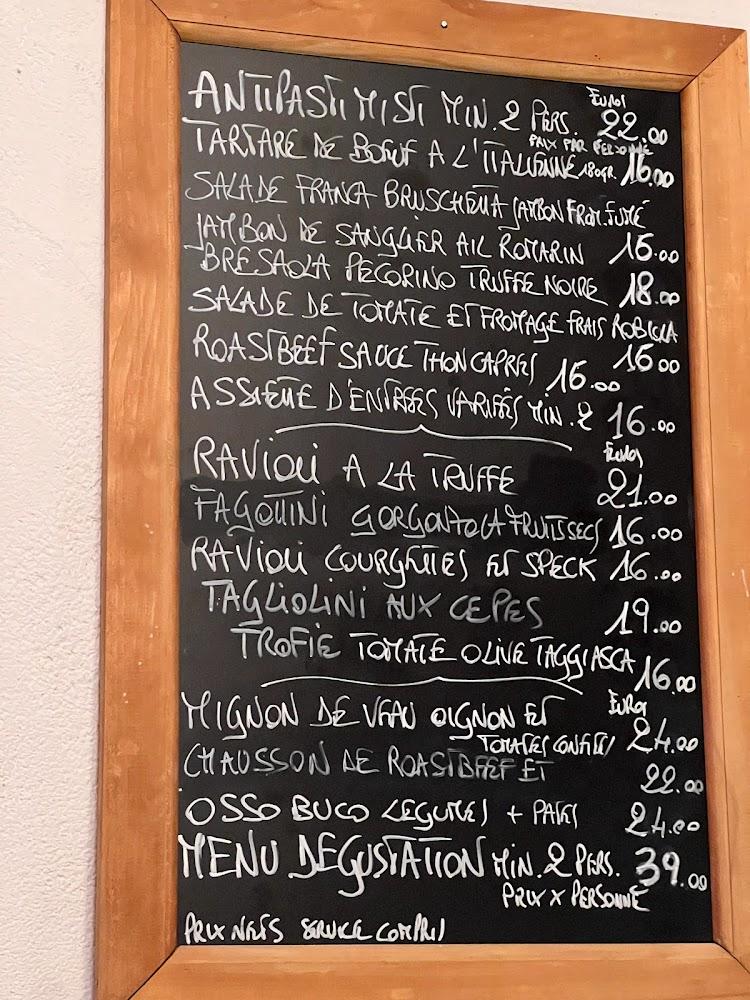 EUROS
ANTIPASTI MISTI MIN. 2 PERS. 22.00
PRIX PAR PERSONNE
TARTARE DE BOEUF A L'ITALIENNE 180GR. 16.00
SALADE FRANCA BRUSCHETTA JAMBON FROM. FUMÉ
JAMBON DE SANGLIER AIL ROMARIN 15.00
BRESAOLA PECORINO TRUFFE NOIRE 18.00
SALADE DE TOMATE ET FROMAGE FRAIS ROBIOLA
16.00
ROASTBEEF SAUCE THON CAPRES 16.00
ASSIETTE D'ENTREES VARIÉES MIN. 2 16.00
EUROS
RAVIOLI A LA TRUFFE 21.00
FAGOTTINI GORGONZOLA FRUITS SECS 16.00
RAVIOLI COURGETTES ET SPECK 16.00
TAGLIOLINI AUX CEPES 19.00
TROFIE TOMATE OLIVE TAGGIASCA 16.00
EUROS
MIGNON DE VEAU OIGNON ET
TOMATES CONFITES 24.00
CHAUSSON DE ROASTBEEF ET 22.00
OSSO BUCO LEGUMES + PATES 24.00
MENU DEGUSTATION MIN. 2 PERS. 39.00
PRIX X PERSONNE
PRIX NETS SERVICE COMPRIS